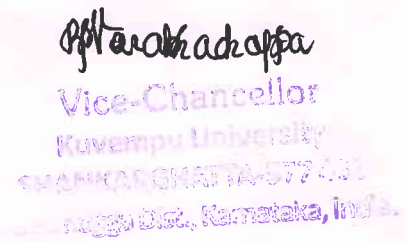 Vice-Chancellor
Kuvempu University
SHANKARGHATTA-577 451
Dist., Karnataka, India.